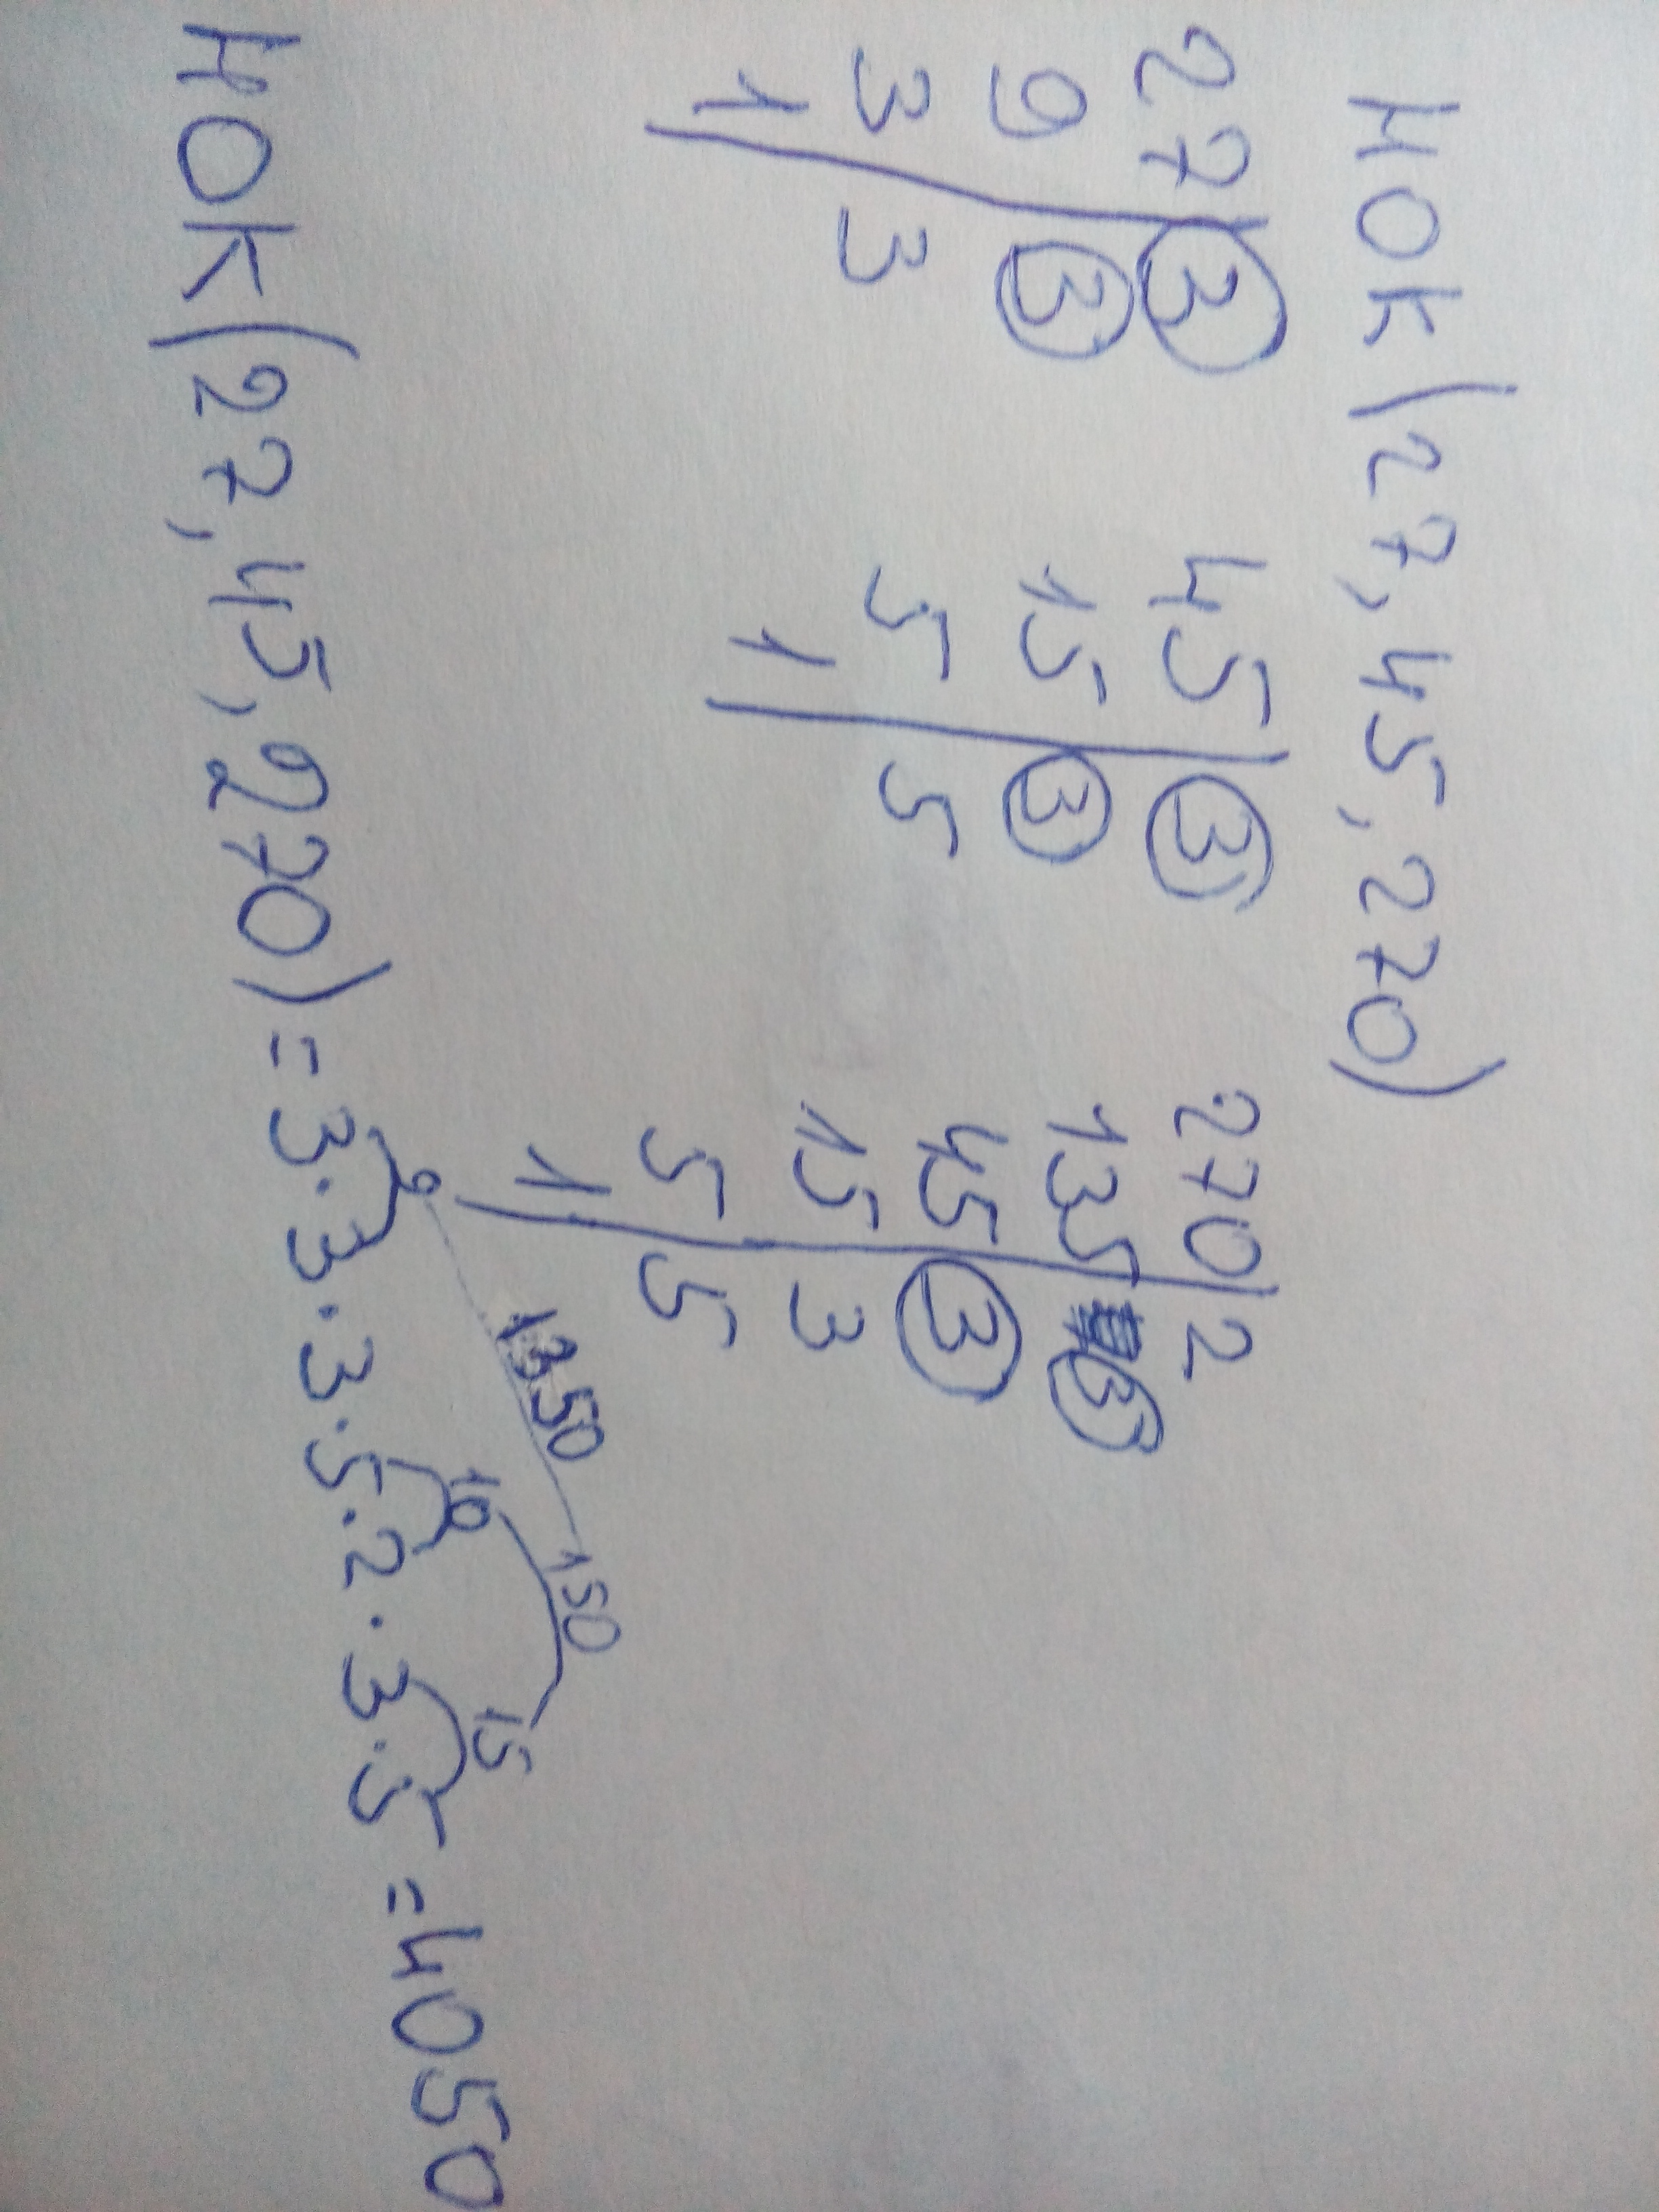 НОК (27, 45, 270)
27 | 3
9 | 3
3 | 3
1 |
45 | 3
15 | 3
5 | 5
1 |
270 | 2
135 | 3
45 | 3
15 | 3
5 | 5
1 |
1350 150
9 10 15
НОК (27, 45, 270) = 3 · 3 · 3 · 5 · 2 · 3 · 5 = 4050